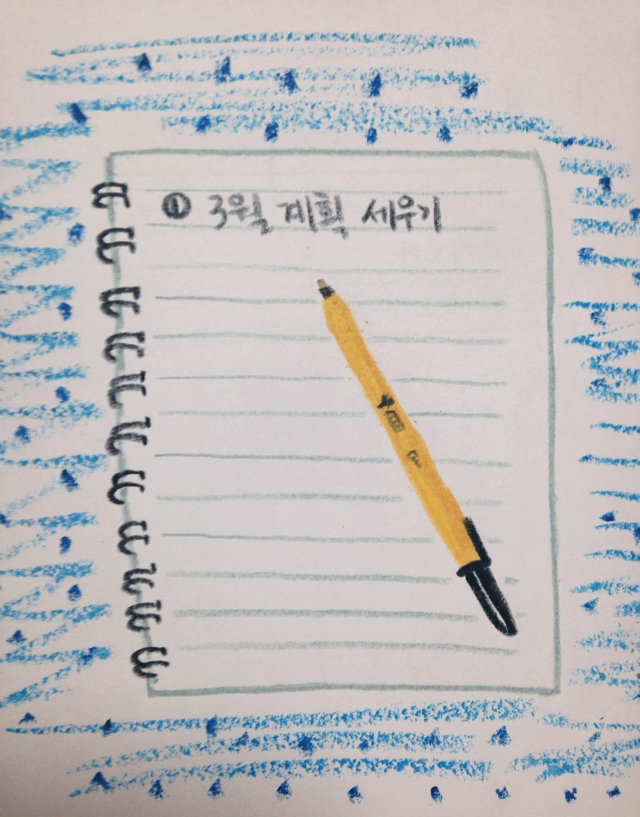 ① 3월 계획 세우기